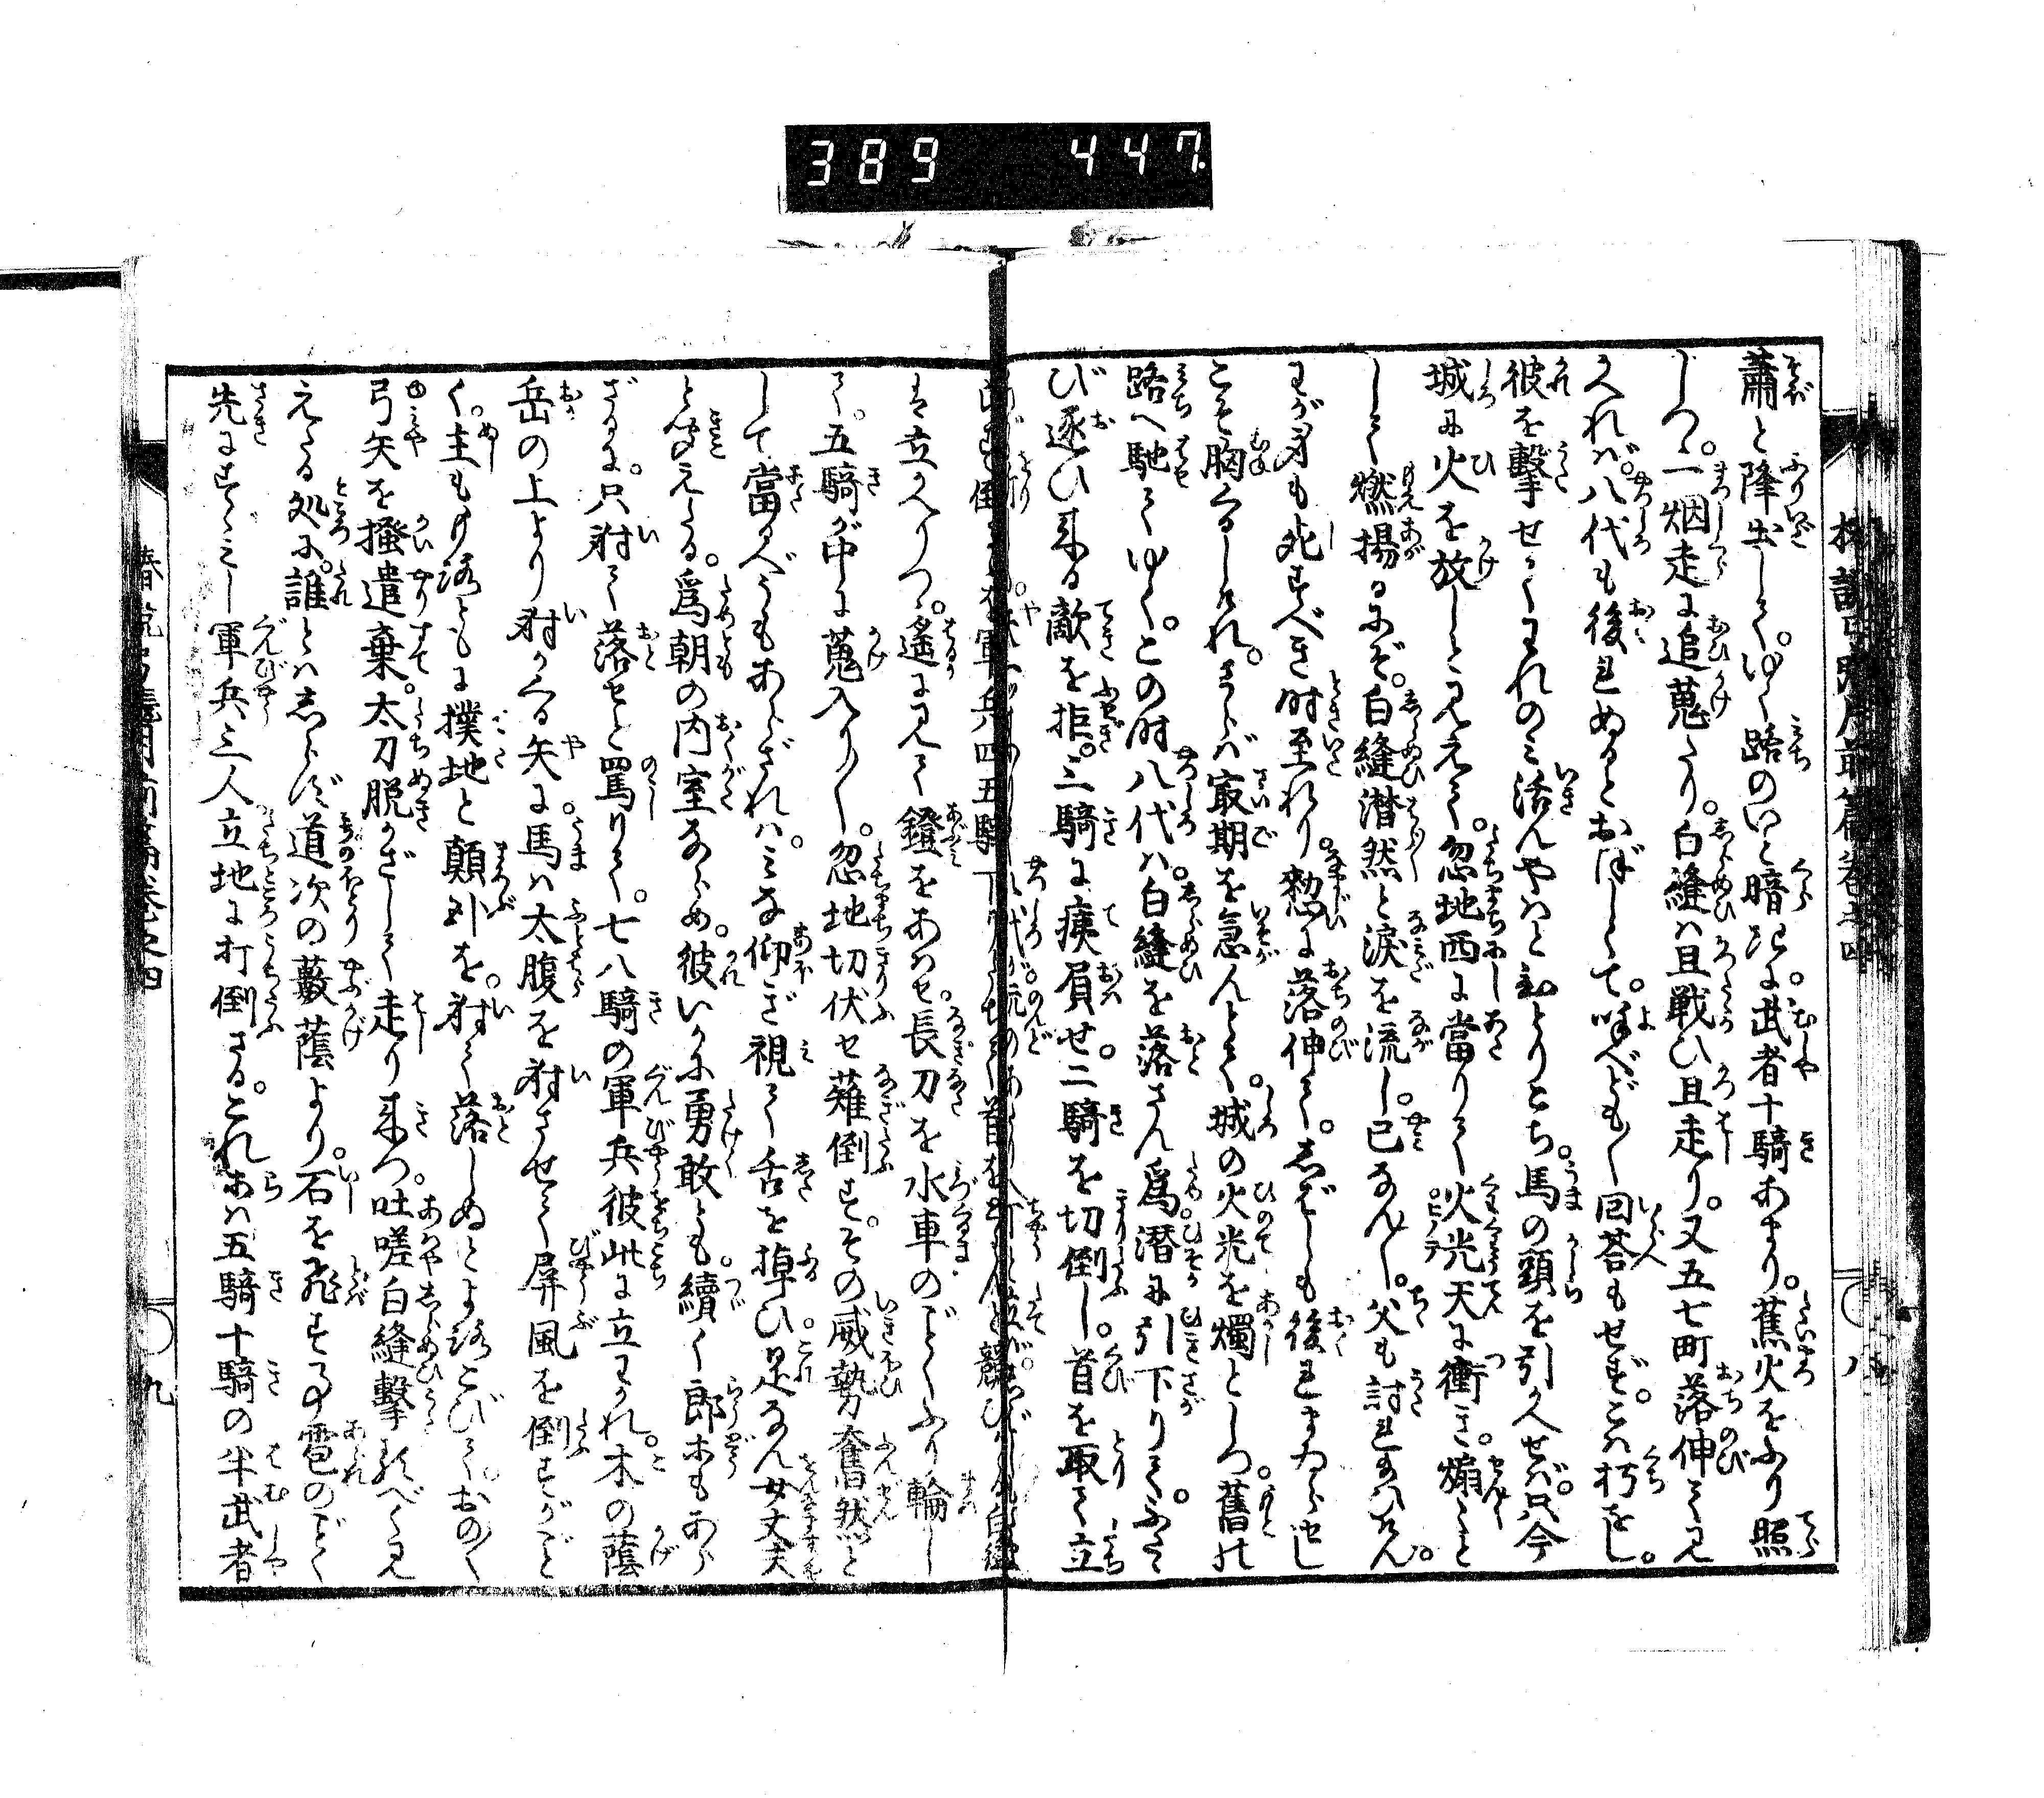 389 447
蕭と降出して。ゆく路のいと暗きに。武者十騎あまり。蕉火をふり照
しつ。一烟走に追蒐たり。白縫は且戦ひ且走り。又五七町落伸て見
かへれば。八代も後れぬるとおぼしくて。呼べども〳〵回答もせず。こは朽をし。
彼を撃せてわれのみ活んやはとひとりごち。馬の頭を引かへせば。只今
城に火を放しと見えて。忽地西に當りて火光天に衝き。煽々と
して燃揚るにぞ。白縫潸然と涙を流し。已なん〳〵。父も討れ給ひけん。
わが身も死すべき時至れり。憖に落伸て。しばしも後れまゐらせし
こそ胸くるしけれ。さらば冣期を急んとて。城の火光を燭としつ。舊の
路へ馳てゆく。この時八代は。白縫を落さん為。潜に引下りて。ふたゝ
び逐ひ来る敵を拒。三騎に痍屓せ。二騎を切倒し。首を取て立
軍兵四五騎
は立かへりつ。遙に見て鐙をあはせ。長刀を水車のごとくふり輪し
て。五騎が中に蒐入り〳〵。忽地切伏せ薙倒す。その威勢奮然と
して當るべうもあらざれは。みな仰ぎ視て舌を掉ひ。是なん女丈夫
と聞えたる。為朝の内室ならめ。彼いかに勇敢とも。續く郎等もあら
ざるに。只射て落せと罵りて。七八騎の軍兵彼此に立わかれ。木の蔭
岳の上より射かくる矢に。馬は太腹を射させて。屏風を倒すがごと
く。主もろともに撲地と顛卧を。射て落しぬとよろこびて。おの〳〵
弓矢を掻遣棄。太刀脱かざして走り来つ。吐嗟白縫撃るべく見
えたる処に。誰とはしらず道次の藪蔭より。石を飛する事雹のごとく
先にすゝみし軍兵三人立地に打倒さる。これらは五騎十騎の半武者
八
九